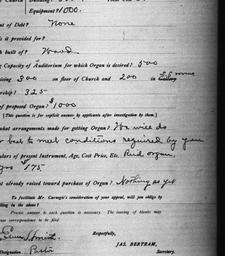 Equipment $1000.
nt of Debt? None
is it provided for?
built of? Wood
g Capacity of Auditorium for which Organ is desired? 500
sing 300 on floor of Church and 200 in
ership? 325
of proposed Organ? $1000
[This question is for explicit answer by applicants after investigation by them.]
what arrangements made for getting Organ? We will do
best to meet conditions required by you
ulars of present Instrument, Age, Cost Price, Etc. Reed organ,
$175.
nt already raised toward purchase of Organ? Nothing as yet
To facilitate Mr. Carnegie's consideration of your appeal, will you oblige by
filling in the above?
Precise answer to each question is necessary. The issuing of blanks may
Respectfully,
JAS. BERTRAM,
Designation Pastor Secretary.